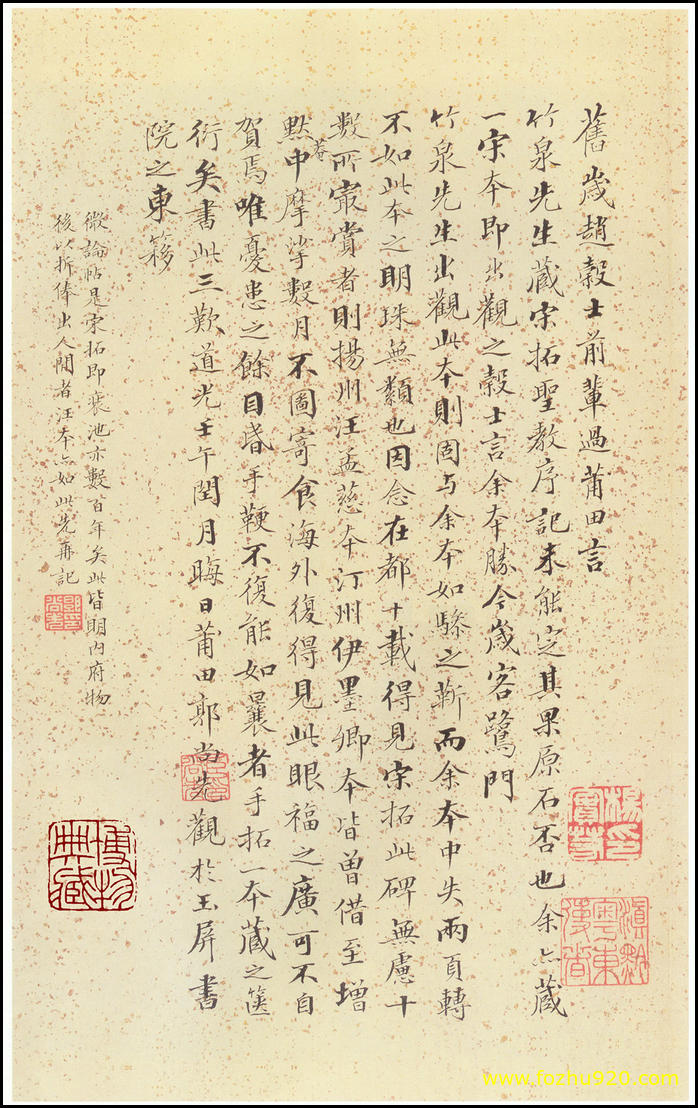 舊歲趙穀士前輩過莆田言
竹泉先生藏宋拓聖教序記未能定其果原石否也余亦藏
一宋本即出觀之穀士言余本勝今歲客鷺門
竹泉先生出觀此本則固与余本如驂之靳而余本中失兩頁轉
不如此本之明珠無纇也因念在都十載得見宋拓此碑無慮十
數所寂賞者則揚州汪孟慈本汀州伊墨卿本皆曾借至增
默庵中摩挲數月不圖寄食海外復得見此眼福之廣可不自
賀焉唯憂患之餘目昏手鞕不復能如曩者手拓一本藏之篋
衍矣書此三歎道光壬午閏月晦日莆田郭尚先觀於玉屏書
院之東簃
微論帖是宋拓即裝池亦數百年矣此皆明內府物
後以折俸出人間者汪本亦如此先再記
博物典藏
www.fozhu920.com